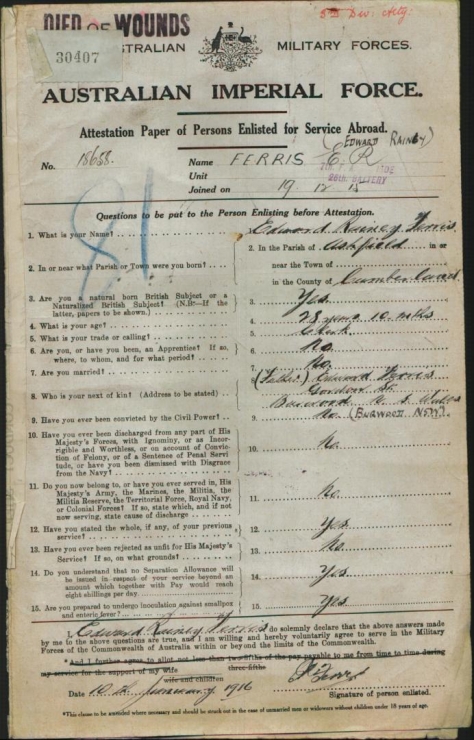 DIED OF WOUNDS
5TH Div. Arty.
30407
AUSTRALIAN MILITARY FORCES.
AUSTRALIAN IMPERIAL FORCE.
Attestation Paper of Persons Enlisted for Service Abroad.
(EDWARD RAINEY)
No. 18658. Name FERRIS E. R
Unit
26th. BATTERY
Joined on 19 12 15
Questions to be put to the Person Enlisting before Attestation.
1. What is your Name? Edward Rainey Ferris
2. In or near what Parish or Town were you born? 2. In the Parish of Ashfield in or
near the Town of
in the County of Cumberland
3. Are you a natural born British Subject or a
Naturalized British Subject? (N.B.—If the
latter, papers to be shown.) 3. Yes
4. What is your age? 4. 28 years 10 mths
5. What is your trade or calling? 5. Clerk
6. Are you, or have you been, an Apprentice? If so,
where, to whom, and for what period? 6. No
7. Are you married? 7. No
8. Who is your next of kin? (Address to be stated) 8. (Father) Edward Ferris
Gordon St.
Burwood N. S. Wales
(BURWOOD NSW)
9. Have you ever been convicted by the Civil Power? 9. No
10. Have you ever been discharged from any part of His
Majesty's Forces, with Ignominy, or as Incor-
rigible and Worthless, or on account of Conviction
of Felony, or of a Sentence of Penal Servi-
tude, or have you been dismissed with Disgrace
from the Navy? 10. No
11. Do you now belong to, or have you ever served in, His
Majesty's Army, the Marines, the Militia, the
Militia Reserve, the Territorial Force, Royal Navy,
or Colonial Forces? If so, state which, and if not
now serving, state cause of discharge 11. No
12. Have you stated the whole, if any, of your previous
service? 12. Yes
13. Have you ever been rejected as unfit for His Majesty's
Service? If so, on what grounds? 13. No
14. Do you understand that no Separation Allowance will
be issued in respect of your service beyond an
amount which together with Pay would reach
eight shillings per day 14. Yes
15. Are you prepared to undergo inoculation against smallpox
and enteric fever? 15. Yes
I, Edward Rainey Ferris do solemnly declare that the above answers made
by me to the above questions are true, and I am willing and hereby voluntarily agree to serve in the Military
Forces of the Commonwealth of Australia within or beyond the limits of the Commonwealth.
*And I further agree to allot not less than two-fifths of the pay payable to me from time to time during
three-fifths
my service for the support of my wife
wife and children
Date 10th January 1916
Signature of person enlisted.
*This clause to be amended where necessary and should be struck out in the case of unmarried men or widowers without children under 18 years of age.